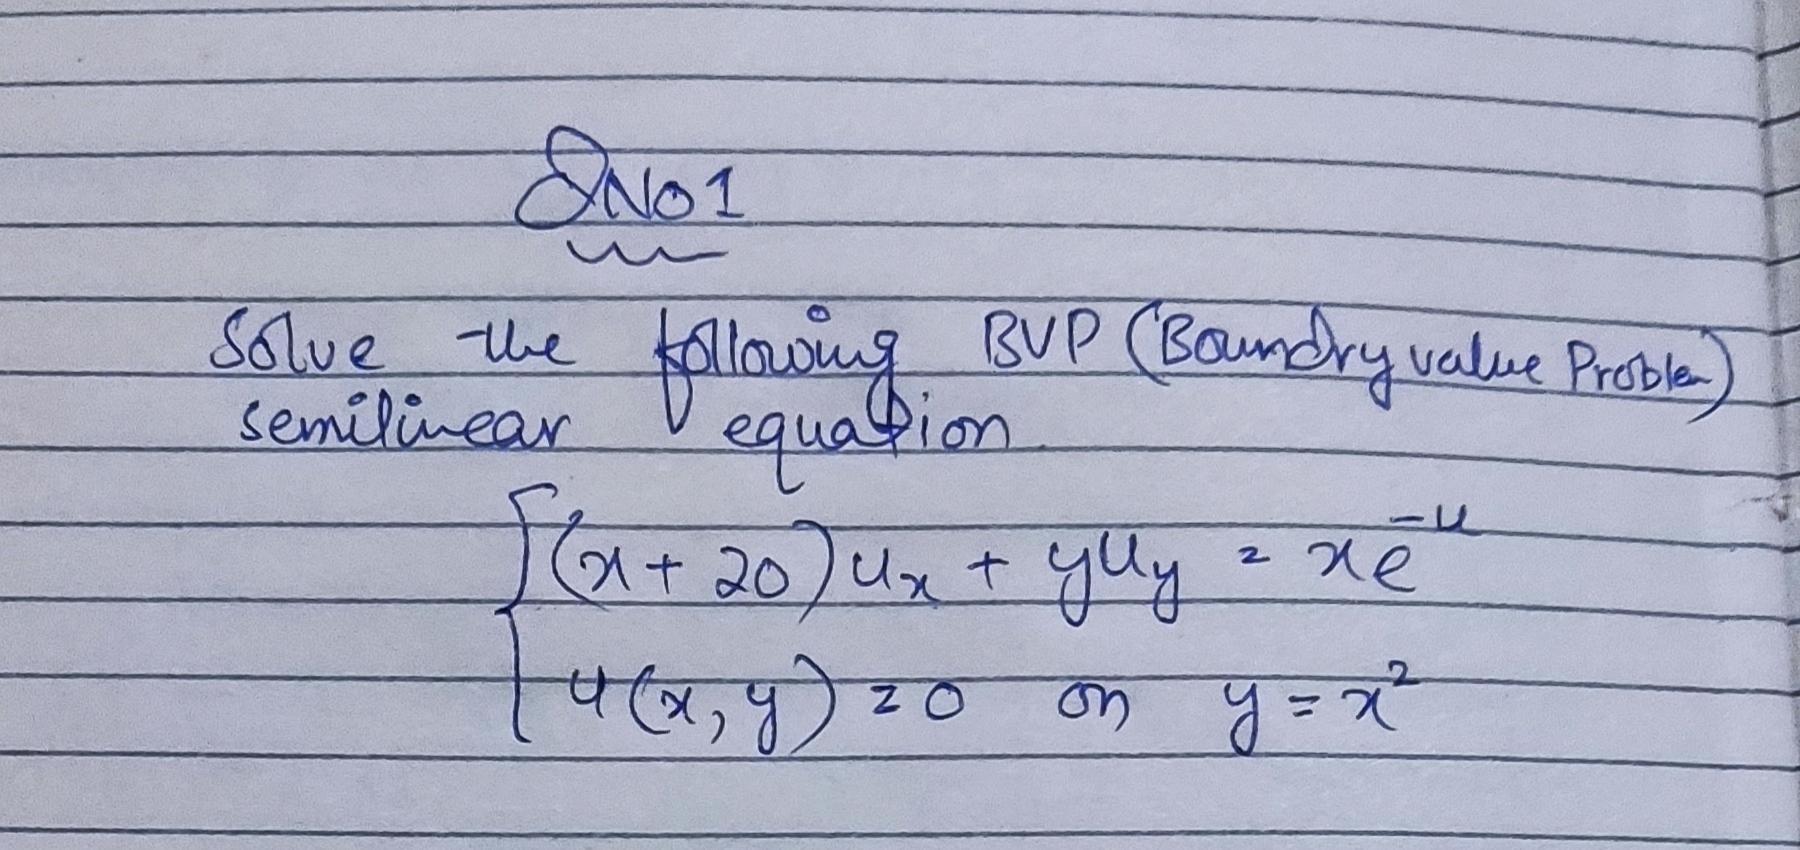 QNo1
Solve the following BVP (Boundry value Problem)
semilinear equation
(x + 20) uₓ + yu_y = xe^-u
u(x, y) = 0 on y = x²